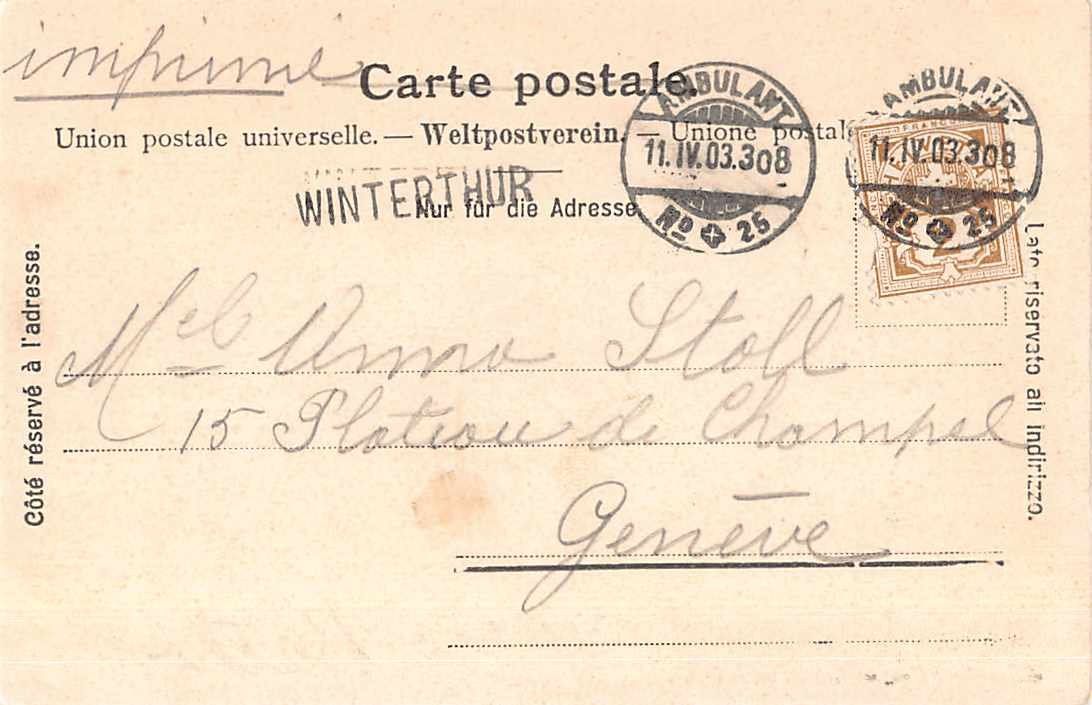 imprimé
Carte postale.
Union postale universelle. — Weltpostverein. — Unione postale
WINTERTHUR
Nur für die Adresse
AMBULANT
11.IV.03.308
No 25
AMBULANT
11.IV.03.308
No 25
FRANCO
HELVETIA
2
Côté réservé à l'adresse.
Lato riservato all indirizzo.
Mel Anna Stoll
15 Plateau de Champel
Genève